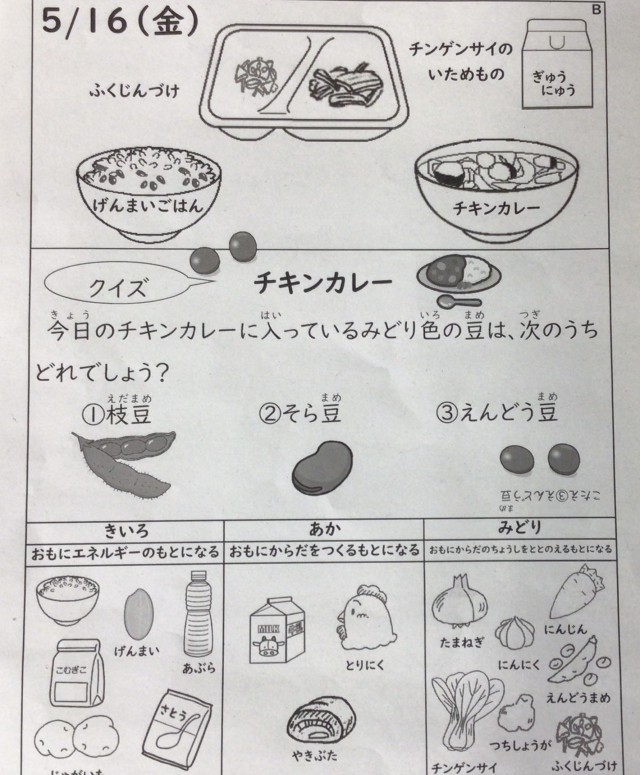 5/16(金)
B
チンゲンサイの
いためもの
ふくじんづけ
ぎゅう
にゅう
げんまいごはん
チキンカレー
クイズ
チキンカレー
きょう はい いろ まめ つぎ
今日のチキンカレーに入っているみどり色の豆は、次のうち
どれでしょう?
えだまめ まめ まめ
①枝豆 ②そら豆 ③えんどう豆
まめ
こたえ③えんどう豆
きいろ あか みどり
おもにエネルギーのもとになる おもにからだをつくるもとになる おもにからだのちょうしをととのえるもとになる
げんまい
あぶら
こむぎこ
さとう
じゃがいも
MILK
とりにく
やきぶた
たまねぎ
にんじん
にんにく
えんどうまめ
つちしょうが
チンゲンサイ
ふくじんづけ